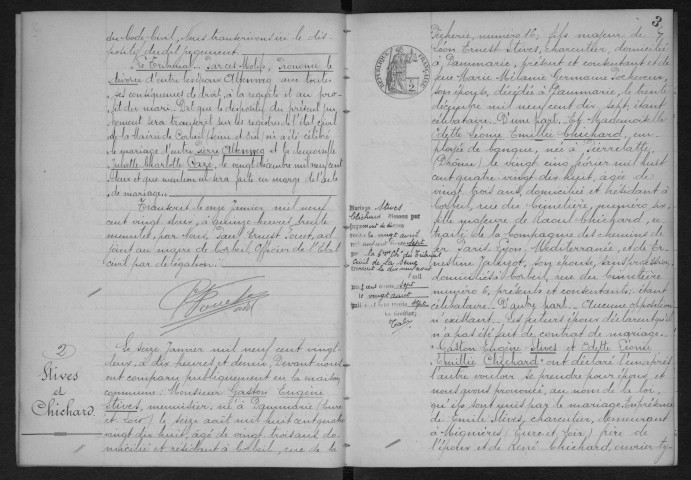 du Code Civil, nous transcrivons ici le dis-
positif du dit jugement
Le Tribunal. Par ces Motifs, Prononce le
divorce d'entre les époux Altenweg avec toutes
ses conséquences de droit, à la requête et au pro-
fit du mari. Dit que le dispositif du présent ju-
gement sera transcrit sur les registres de l'état civil
de la Mairie de Corbeil (Seine et Oise) où a été célébré
le mariage d'entre Pierre Altenweg et la demoiselle
Juliette Charlotte le vingt mil neuf cent
et que mention en sera faite en marge de l'acte
de mariage.
Transcrit le seize Janvier mil neuf
cent vingt deux, à quinze heures trente
minutes, par nous, Paul Ernest ad-
joint au maire de Corbeil, Officier de l'Etat
civil par délégation.
2
Stives
et
Chichard
Le seize Janvier mil neuf cent vingt
deux, à dix heures et demie, Devant nous
ont comparu publiquement en la maison
commune : Monsieur Gaston Eugène
Stives, menuisier, né à Dammarie (Eure
et Loir) le seize août mil huit cent quatre
vingt dix huit, âgé de vingt trois ans, do-
micilié et résidant à Corbeil, rue de la
3
Pêcherie, numéro 16, fils majeur de
Léon Ernest Stives, charcutier, domicilié
à Dammarie, présent et consentant et de
feue Marie Mélanie Germaine
son épouse, décédée à Dammarie, le trente
décembre mil neuf cent dix sept, étant
célibataire. D'une part. Et Mademoiselle
Odette Léonie Emilie Chichard, em-
ployée de banque, née à Pierrelatte
(Drôme) le vingt cinq février mil huit
cent quatre vingt dix huit, âgée de
vingt trois ans, domiciliée et résidant à
Corbeil, rue du Cimetière, numéro six,
fille majeure de Raoul Chichard, re-
traité de la Compagnie des chemins de
fer Paris Lyon Méditerranée, et de Er-
nestine son épouse, sans profession,
domiciliés à Corbeil, rue du Cimetière
numéro 6, présents et consentants ; étant
célibataire. D'autre part. Aucune opposition
n'existant. Les futurs époux déclarent qu'il
n'a pas été fait de contrat de mariage.
Gaston Eugène Stives et Odette Léonie
Emilie Chichard ont déclaré l'un après
l'autre vouloir se prendre pour époux, et
nous avons prononcé, au nom de la loi,
qu'ils sont unis par le mariage. En présence
de Emile Stives, charcutier, demeurant
à Mignières (Eure et Loir) frère de
l'époux et de René Chichard, ouvrier ty-
REPUBLIQUE FRANÇAISE
Mariage Stives
Chichard dissous par
jugement de divorce
rendu le vingt avril
mil neuf cent trente sept
par la Ch. du Tribunal
civil de la Seine
transcrit le dix neuf août
mil neuf cent trente sept
le vingt août
mil neuf cent trente sept
Le Greffier,